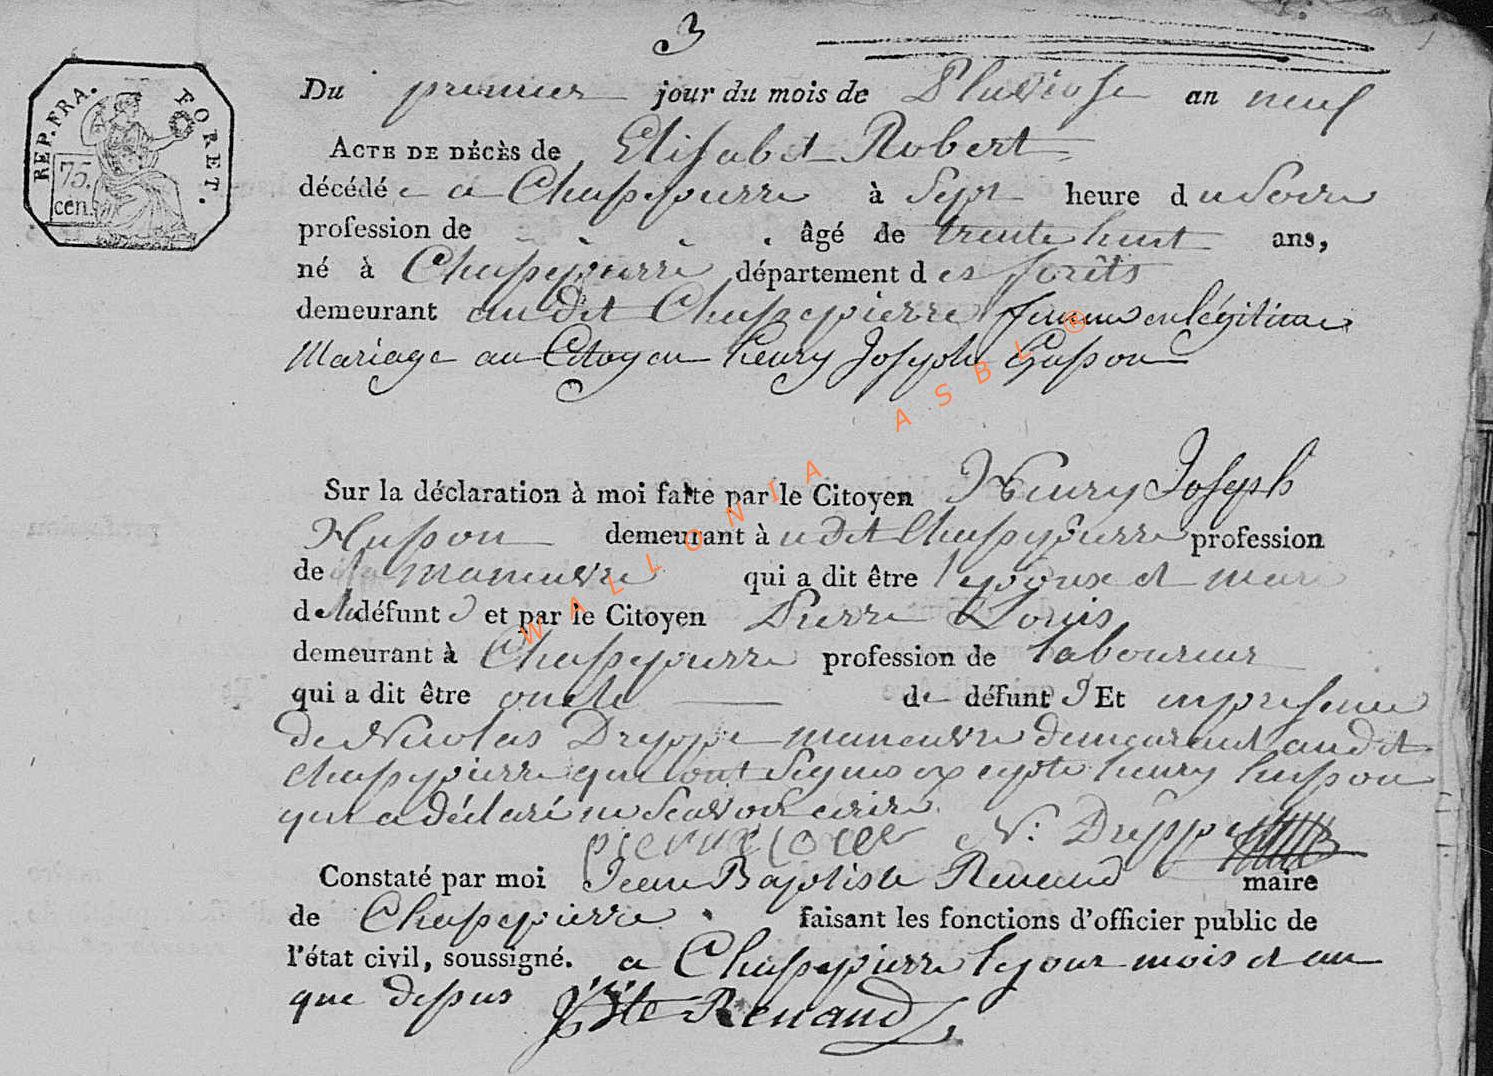 3
REP. FRA. FORET.
75.
cen.
Du premier jour du mois de Pluviose an neuf
ACTE DE DÉCÈS de Elisabet Robert
décédé e a Chassepierre à Sept heure du Soire
profession de âgé de trente huit ans,
né à Chassepierre département des forêts
demeurant au dit Chassepierre femme en légitime
Mariage au Citoyen henry Joseph Husson
Sur la déclaration à moi faite par le Citoyen Henry Joseph
Husson demeurant à udit Chassepierre profession
de maneuvre qui a dit être l'epoux et mari
de la défunte et par le Citoyen Pierre Louis
demeurant à Chassepierre profession de laboureur
qui a dit être oncle de défunte Et en presence
de Nicolas Dreppe maneuvre demeurant audit
chassepierre qui ont Signé exepté henry husson
qui a déclaré ne Scavoir ecrire
pierre loui N: Dreppe
Constaté par moi Jean Baptiste Renaud maire
de Chassepierre faisant les fonctions d'officier public de
l'état civil, soussigné. a Chassepierre le jour mois et an
que dessus JBte Renaud
WALLONIA ASBL ®